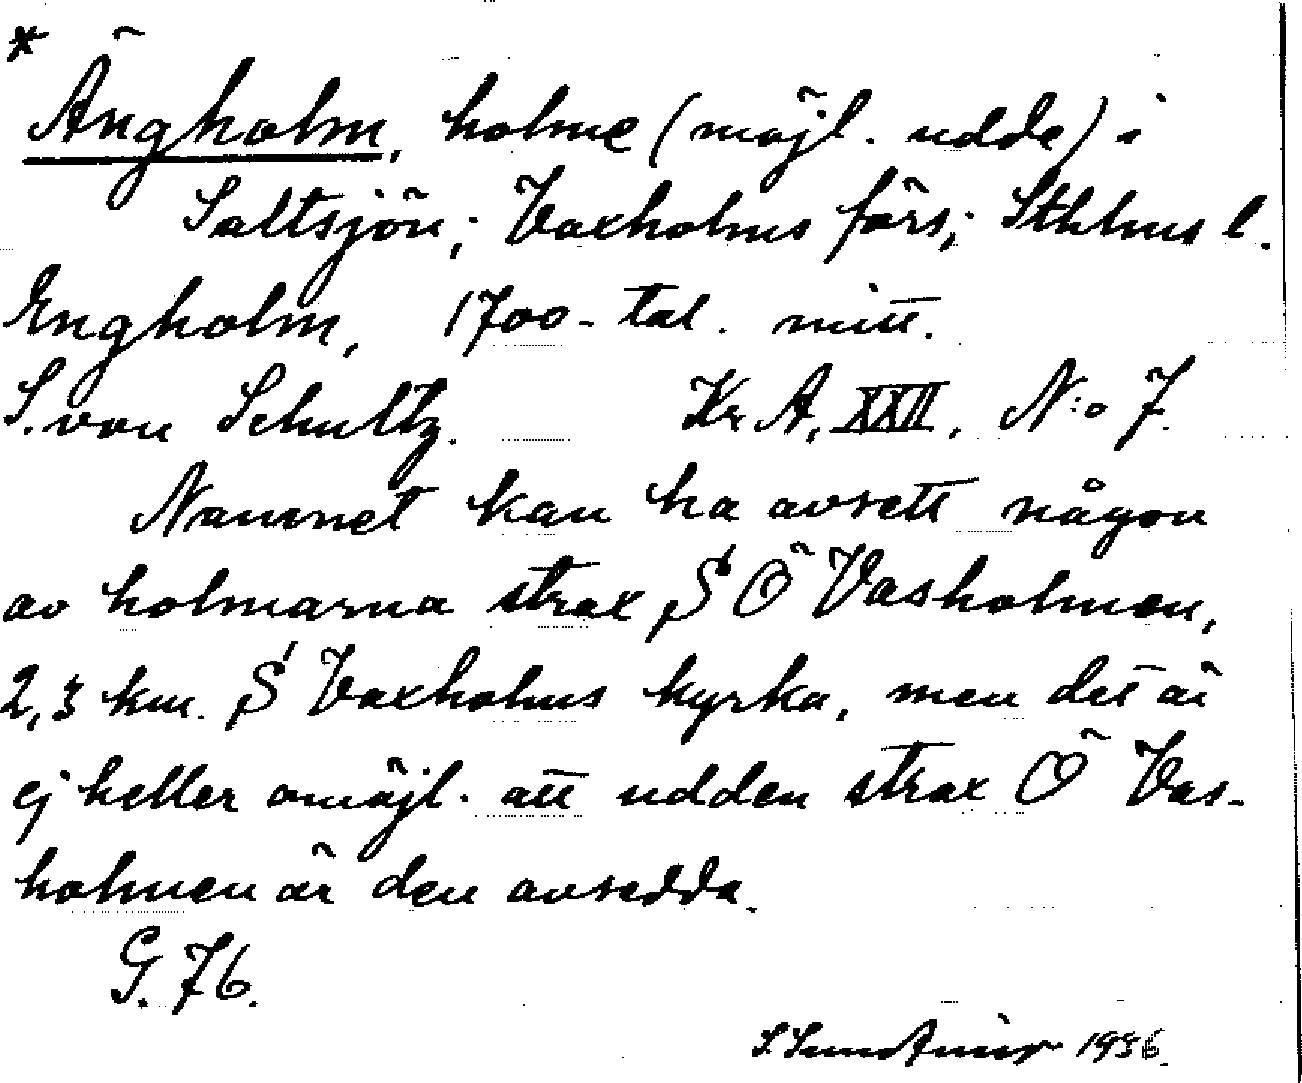 *
Ängholm, holme (möjl. udde) i
Saltsjön; Vaxholms förs; Sthlms l.
Engholm, 1700-tal. mitt.
S. von Schultz. Kr A, XXII, N:o 7.
Namnet kan ha avsett någon
av holmarna strax S Ö Vasholmen,
2,3 km. S Vaxholms kyrka, men det är
ej heller omöjl. att udden strax Ö Vas-
holmen är den avsedda.
G. 76.
S. 1936.